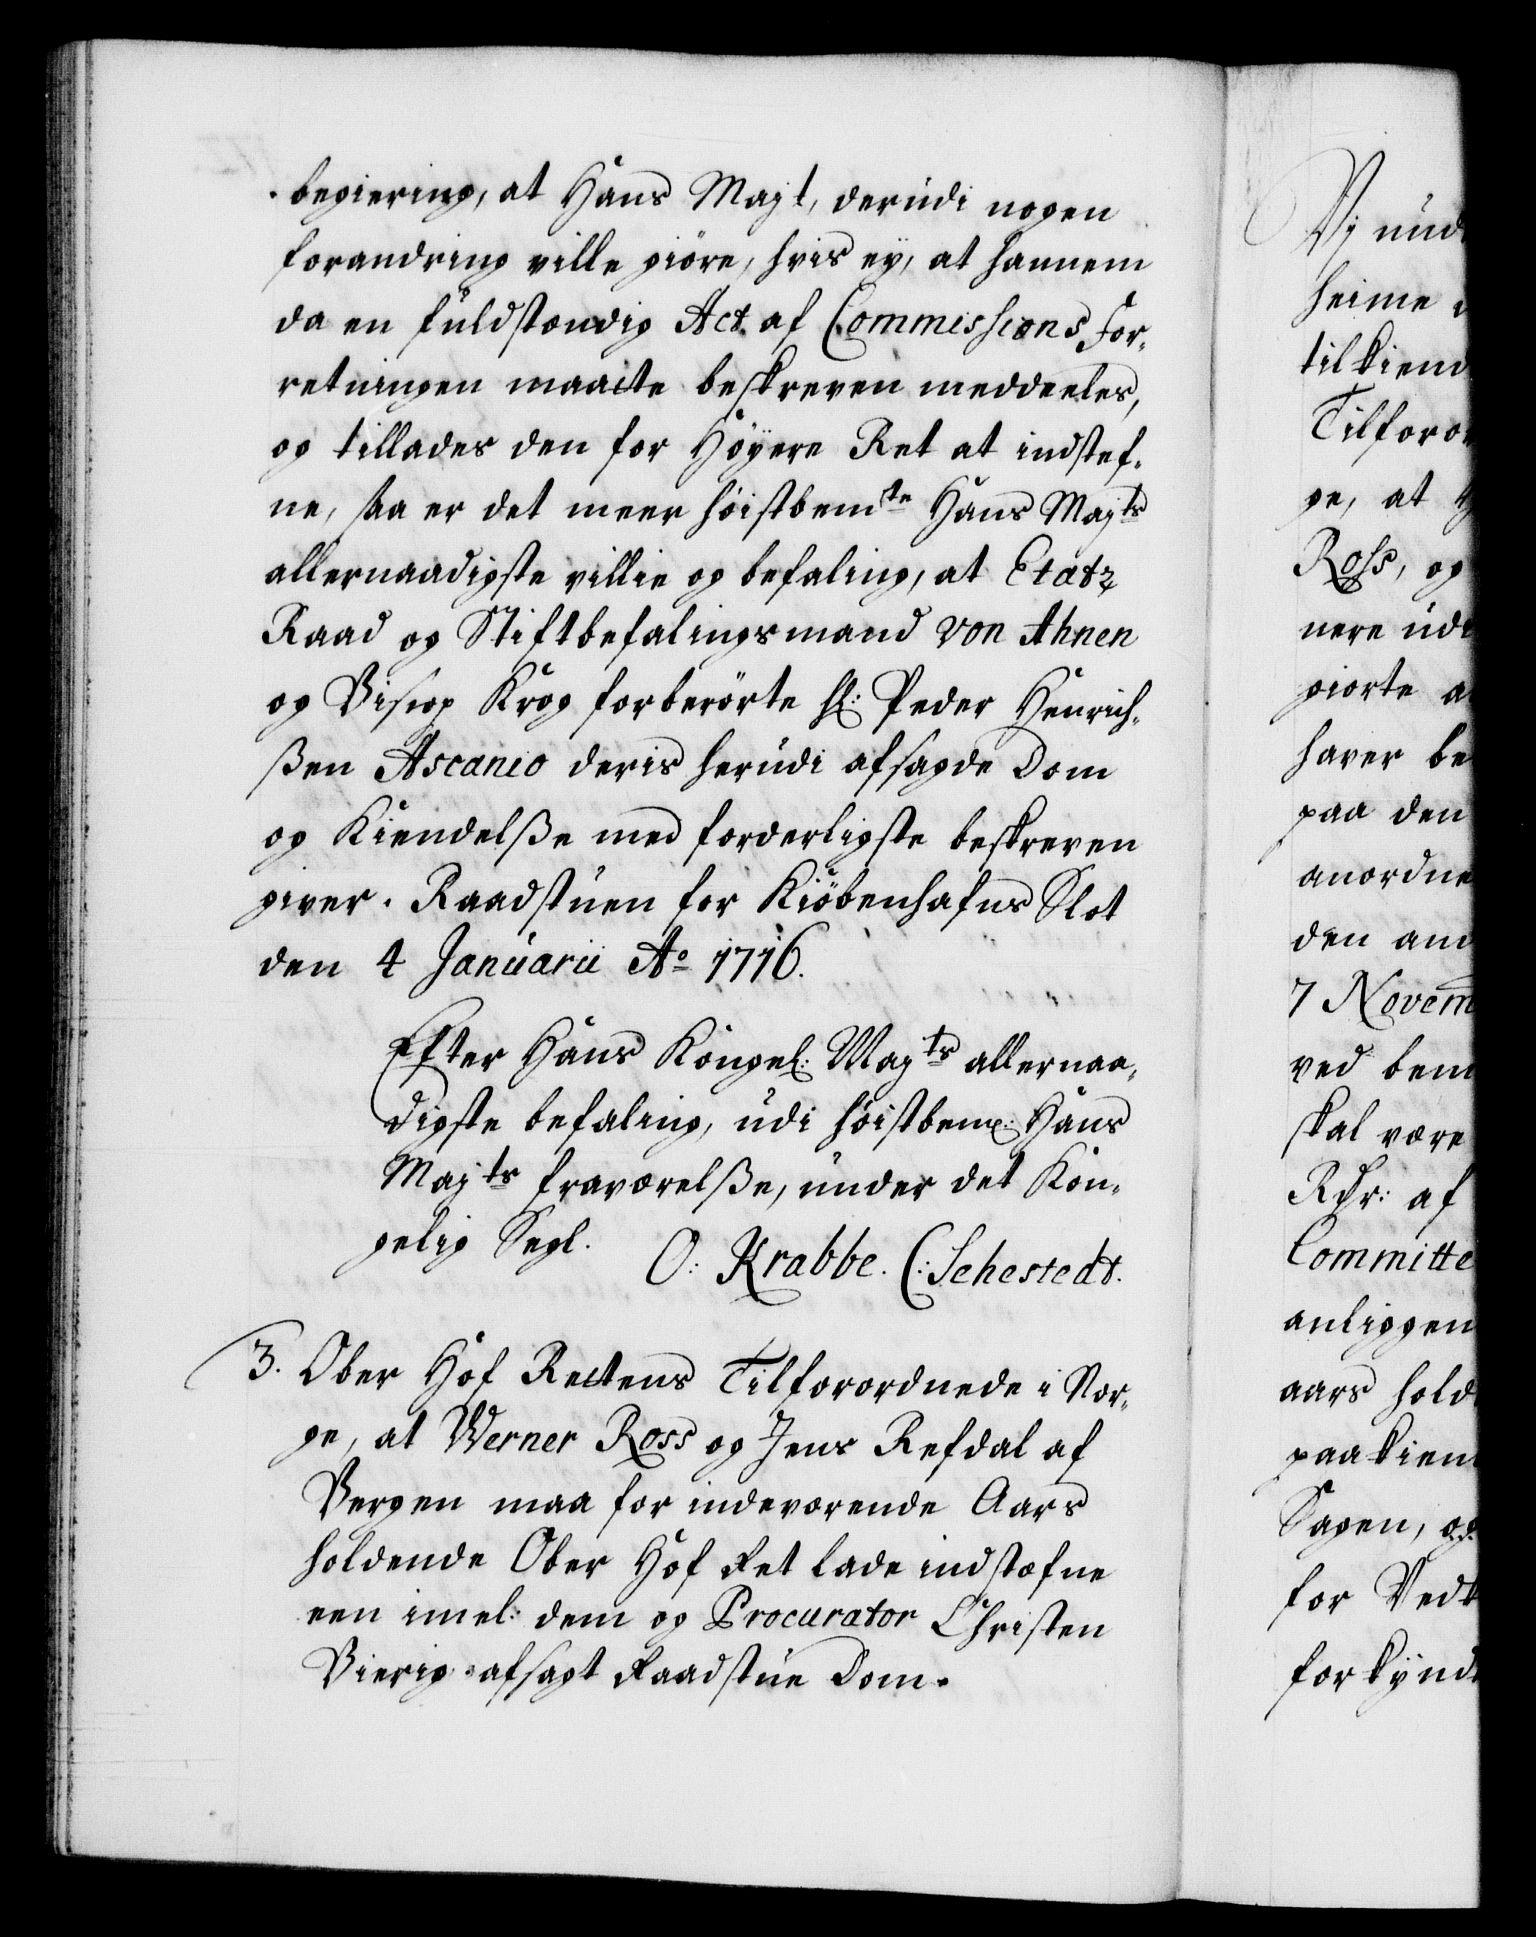 begiering, at Hans Majt, derudi nogen
forandring ville giöre, hvis ey, at hannem
da en fuldstændig Act af Commissions For-
retningen maatte beskreven meddeeles,
og tillades den for Höyere Ret at indstef-
ne, saa er det meer höistbemte Hans Majts
allernaadigste villie og befaling, at Etatz
Raad og Stiftbefalingsmand von Ahnen
og Biscop Krog forberörte Hr: Peder Henrich-
ßen Ascanio deris herudi afsagde Dom
og Kiendelße med forderligste beskreven
giver. Raadstuen for Kiöbenhafns Slot
den 4 Januarii Ao 1716.
Efter Hans Kongel: Majts allernaa-
digste befaling, udi höistbem: Hans
Majts fraværelße, under det Kon-
gelig Segl.
O: Krabbe. C: Sehestedt.
3. Ober Hof Rettens Tilforordnede i Nor-
ge, at Werner Ross og Jens Refdal af
Bergen maa for indeværende Aars
holdende Ober Hof Ret lade indstæfne
een imel: dem og Procurator Christen
Bierig afsagt Raadstue Dom.
Vj
heime
at
Ross, og
nere
giorte
haver
paa den
7
ved
skal være
Rdr: af
aars
Sagen, og
for